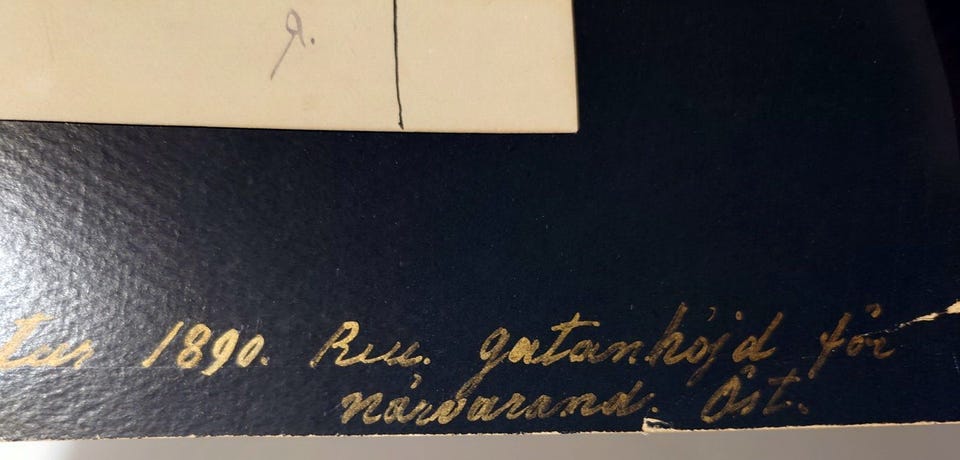 R.
tur 1890. Rev. gatanhöjd för
närvarand. Öst.